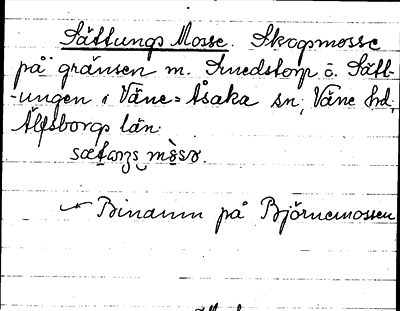 Sättungs Mosse. Skogsmosse
på gränsen m. Smedstorp o. Sätt-
-ungen i Väne-Åsaka sn, Väne hd,
Älfsborgs län.
Binamn på Björnemossen